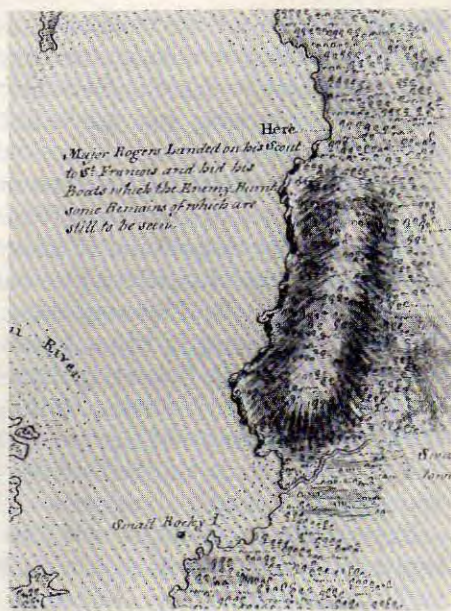 Here
Major Rogers Landed on his Scout
to St. Francis and hid his
Boats which the Enemy Burnt
some Remains of which are
still to be seen.
River
Small Rocky I.